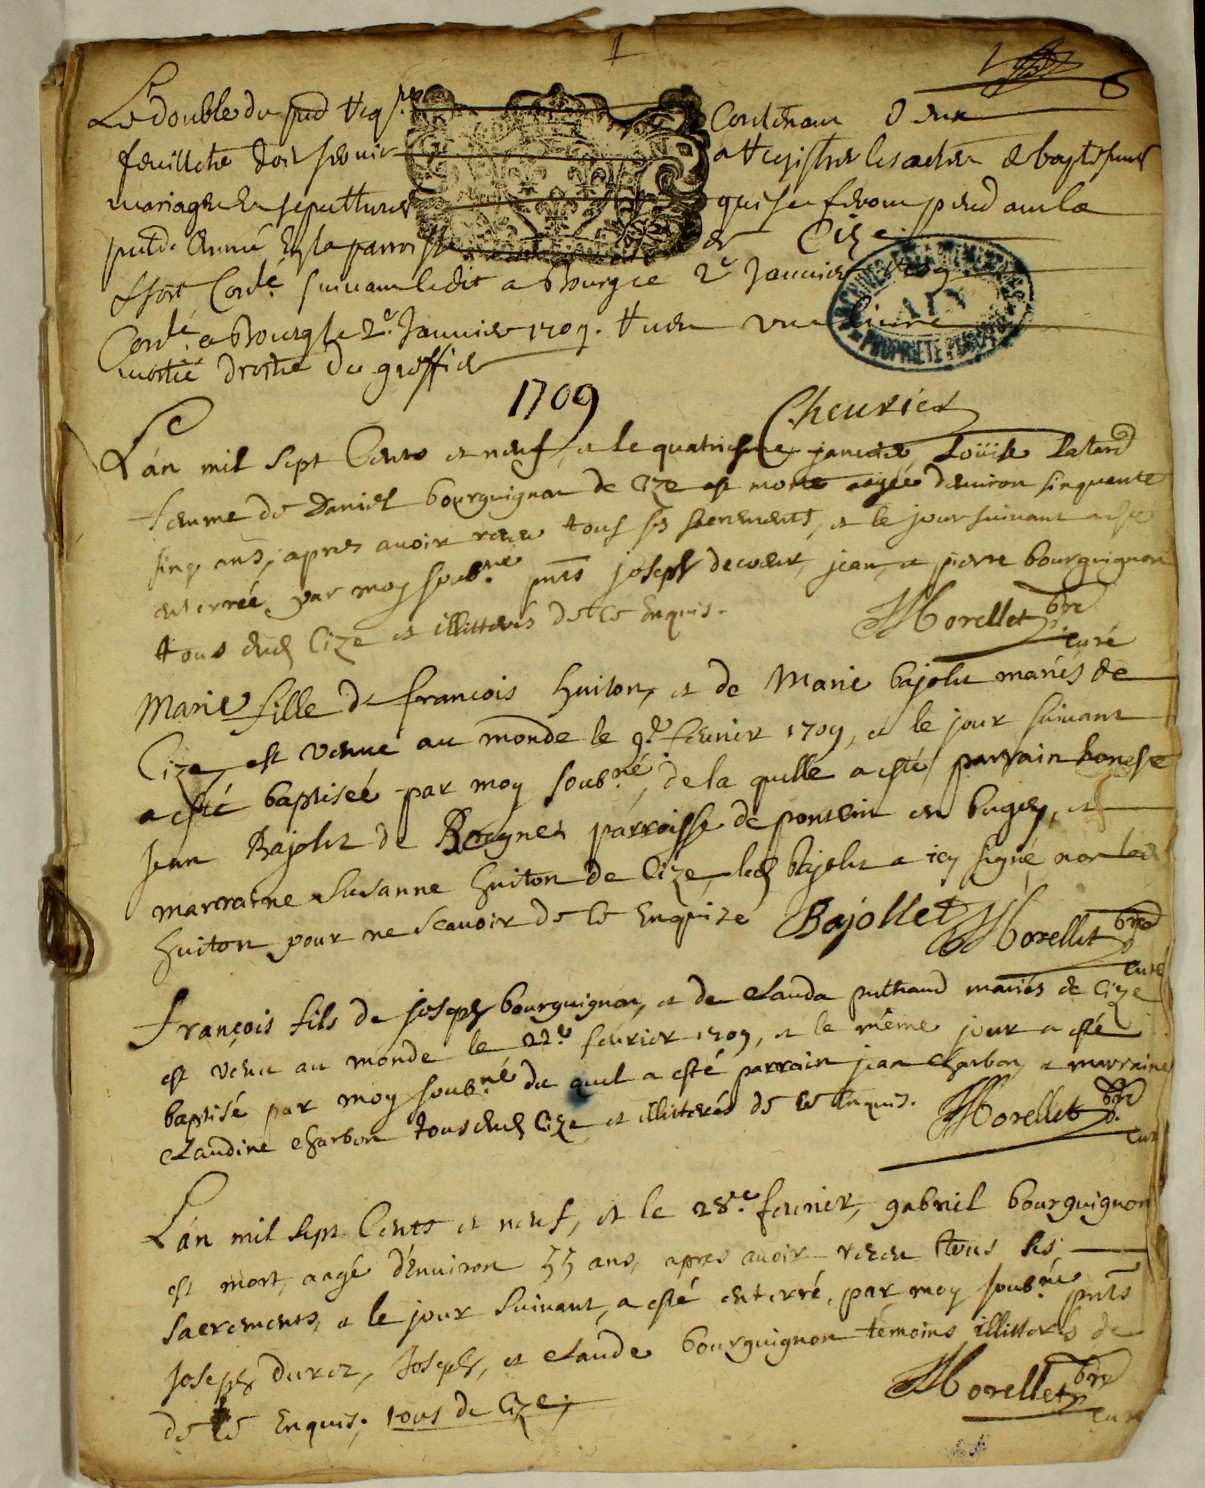 1
Le double du pnt Regre Contenant deux
feuillets doit servir a Registrer les actes de baptesmes
mariages et sepultures qui se feront pendant la
pnte année en la parroisse de Cize
Cotté suivant ledit a Bourg ce 2e Janvier 1709
Conlé a Bourg le 2e Janvier 1709. Receu une livre
moitié droits du greffier
1709
Cheurier
L'an mil sept Cents et neuf, et le quatriesme janvier, Loüise Patard
femme de Daniel bourguignon de Cize est morte aagée d'environ sinquante
sinq ans, apres avoir receu tous ses sacrements, et le jour suivant a esté
enterrée par moy soubné pnts joseph decoeur, jean, et pierre bourguignon
tous dud Cize et illitterés de ce Enquis.
Morellet pbre
curé
Marie fille de françois huiton, et de Marie bajolet mariés de
Cize, est venue au monde le 9e fevrier 1709, et le jour suivant
a esté baptisée par moy soubné, de la quelle a esté parrain honeste
Jean Bajolet de parroisse de poncin en bugey, et
marraine Susanne huiton de Cize, led bajolet a icy signé non lad
huiton pour ne scavoir de ce Enquize Bajollet Morellet pbre
curé
françois fils de joseph bourguignon, et de clauda puthaud mariés de Cize
est venu au monde le 22e fevrier 1709, et le même jour a esté
baptisé par moy soubné du quel a esté parrain jean charbon, et marraine
claudine charbon tous dud Cize et illiterés de ce enquis. Morellet pbre
curé
L'an mil sept Cents et neuf, et le 28e fevrier, gabriel bourguignon
est mort, aagé d'Environ 55 ans, apres avoir receu tous ses
sacrements, et le jour suivant, a esté enterré, par moy soubné pnts
joseph durez, Joseph, et claude bourguignon témoins illitterés de
de ce Enquis, tous de Cize,
Morellet pbre
curé